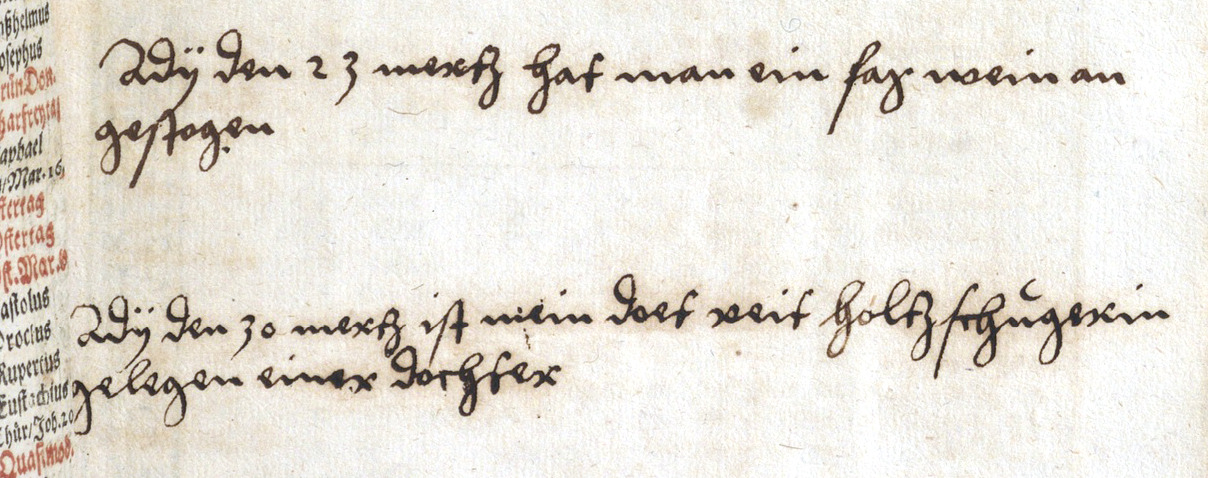 ßhelmus
osephus
rün Don.
harfreytag
aphael
/Mar. 16.
stertag
Ostertag
ost. Mar.
astolus
Rupertus
Eustachius
Thür/Joh. 20
Quasimod.
Adÿ den 23 mertz hat man ein faz wein an
gestogen
Adÿ den 30 mertz ist mein doet veit holtzschugerin
gelegen einer dochter